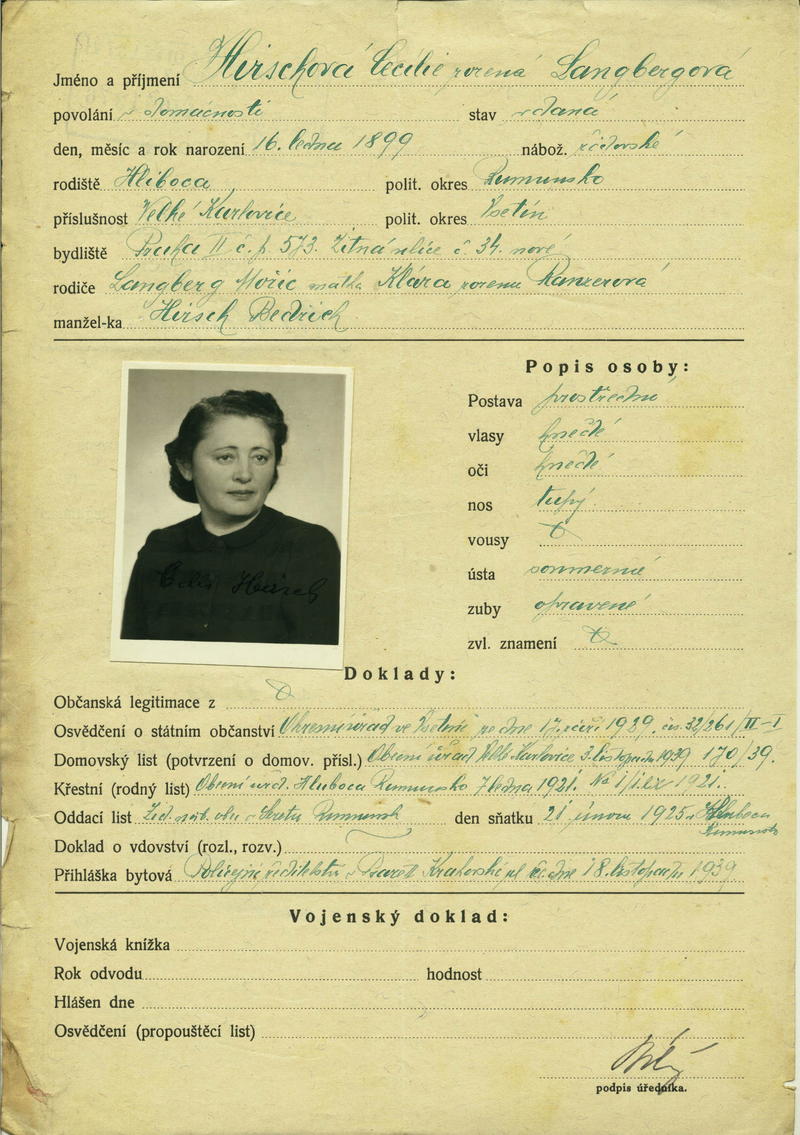 Jméno a příjmení Hirschová Cecilie rozená Langbergová
povolání v domácnosti stav vdaná
den, měsíc a rok narození 16. ledna 1899 nábož. židovské
rodiště Hliboca polit. okres Rumunsko
příslušnost Velké Karlovice polit. okres Vsetín
bydliště Praha II č.p. 573. Žitná ulice č. 34. nové
rodiče Langberg Mořic matka Klára rozená Ranzerová
manžel-ka Hirsch Bedřich
Popis osoby:
Postava prostřední
vlasy hnědé
oči hnědé
nos tupý
vousy
ústa souměrné
zuby opravené
zvl. znamení
Hirsch
Doklady:
Občanská legitimace z
Osvědčení o státním občanství Okresní úřad ve Vsetíně ze dne 17. září 1929. čís. 32/261/II-I
Domovský list (potvrzení o domov. přísl.) Obecní úřad Velké Karlovice 3. listopadu 1939 170/39.
Křestní (rodný list) Obecní úřad. Hluboca Rumunsko 7 ledna 1921. No 1921.
Oddací list Žid. náb. obec v Rumunsk den sňatku 21 února 1925 v Hluboca
Rumunsko
Doklad o vdovství (rozl., rozv.)
Přihláška bytová Policejní ředitelství v Praze II Krakovská ul. ze dne 18. listopadu 1939
Vojenský doklad:
Vojenská knížka
Rok odvodu hodnost
Hlášen dne
Osvědčení (propouštěcí list)
podpis úředníka.